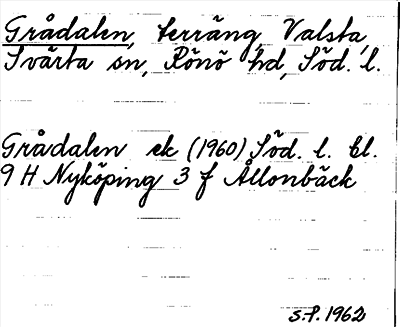 Grådalen, terräng, Valsta,
Svärta sn, Rönö hd, Söd. l.
Grådalen ek (1960) Söd. l. bl.
9 H Nyköping 3 f Ållonbäck
S.P. 1962